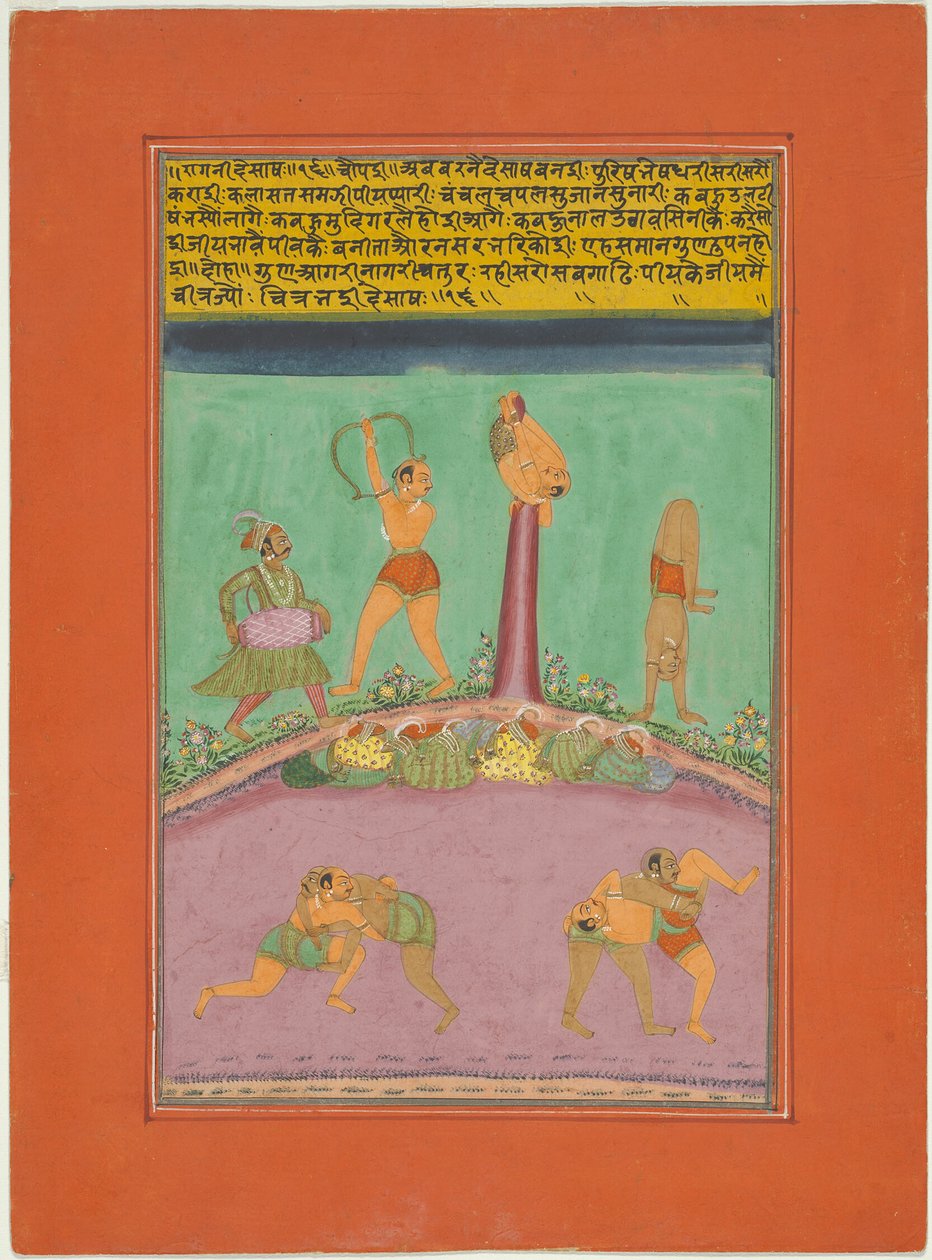 ॥रागनी देसाषः॥१६॥चौपई॥अब बरनैं देसाष बनाई: पुरिष नेष धरी सरी सरौं
कराई: कलासत सम गी पीयप्यारी: चंचल चपल सुजान सुनारी: कबहु उलटी
षंन स्यौं लागै: कबहु मुदिगर लै होई आगै: कबहु नाल उगवसि नीकै: करै सो
ई जीय नावै पीव कै: बनीता और न सर नरि कोई: एह समान गुण पन हो
ई॥दोहा॥गुण आगरी नागरी चतुर: रही सरोस बगाढि: पीय के जीय मैं
चीत्र ज्यौं: चित्र नई देसाषः॥१६॥ ॥ ॥ ॥